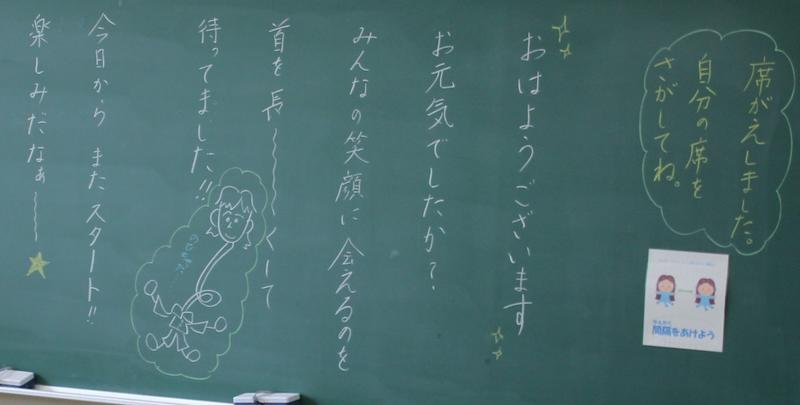 席がえしました。
自分の席を
さがしてね。
おはようございます
お元気でしたか？
みんなの笑顔に会えるのを
首を長〜〜〜くして
待ってました!!
今日から またスタート!!
楽しみだなぁ〜〜〜
かんかく
間隔をあけよう